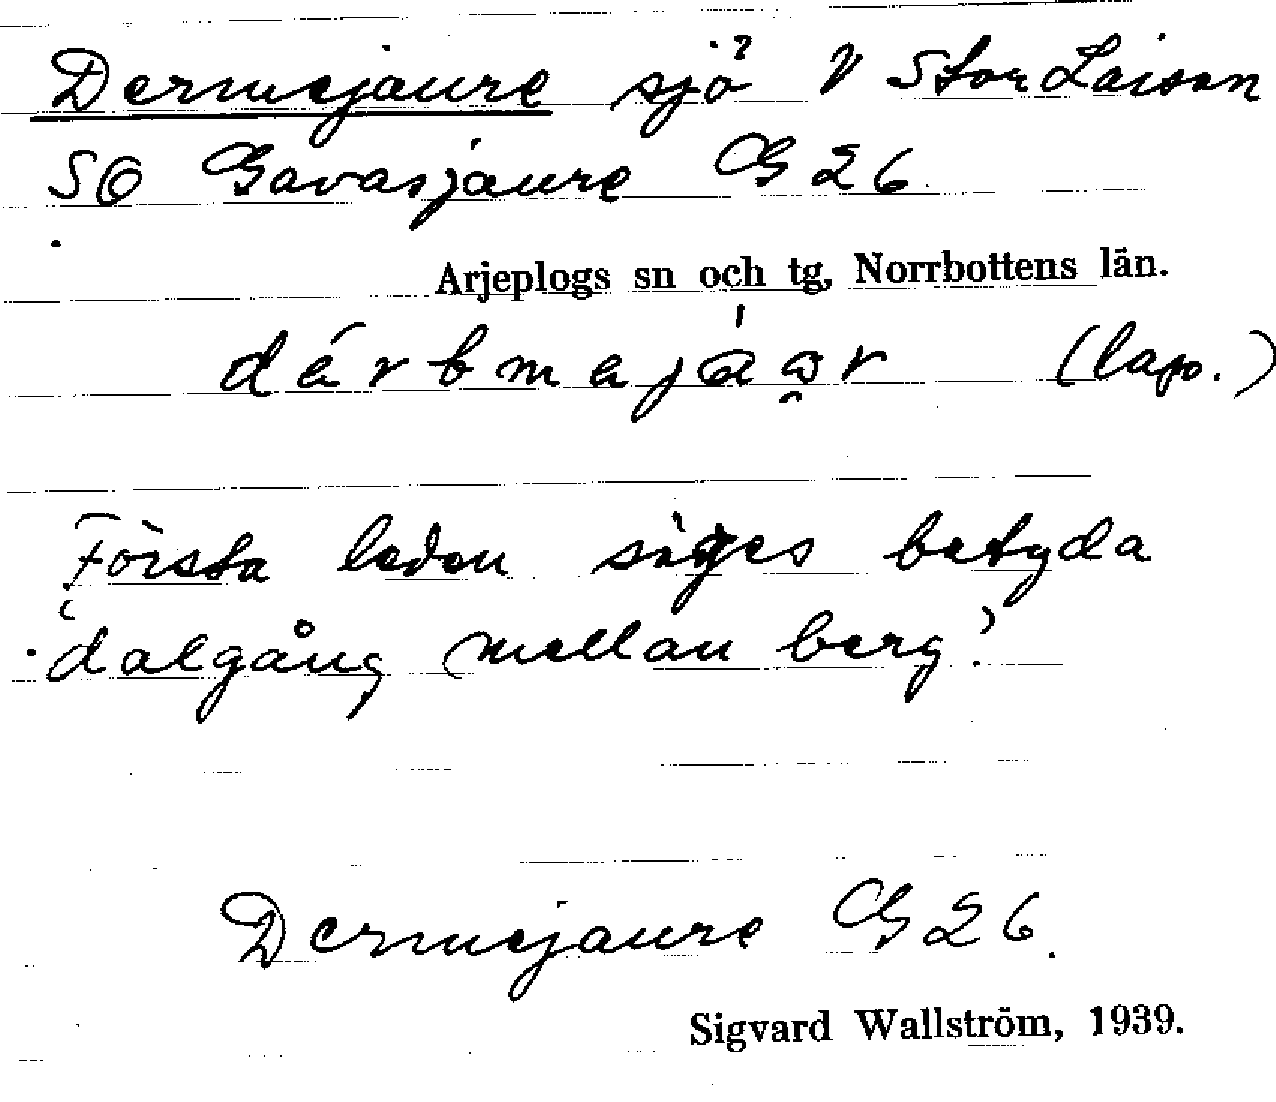 Dermejaure sjö V Stor Laisan
SO Gavasjaure G 26
Arjeplogs sn och tg, Norrbottens län.
dérbmejàɷ̯r (lap.)
Första leden säges betyda
'dalgång mellan berg'.
Dermejaure G 26.
Sigvard Wallström, 1939.